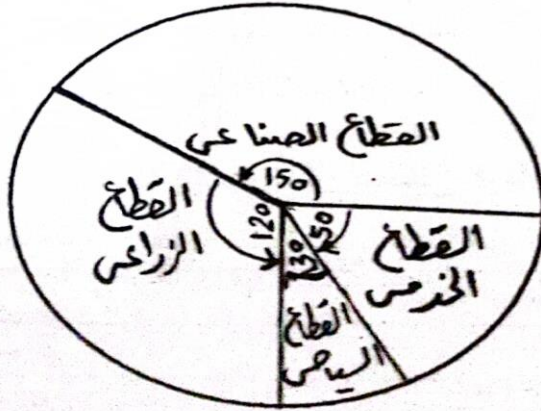 القطاع الصناعى
150
القطاع
الزراعى
120
القطاع
الخدمى
50
30
القطاع
السياحى